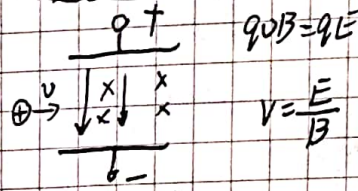 +
qvB=qE
⊕ v
× ×
× ×
v=E/B
−